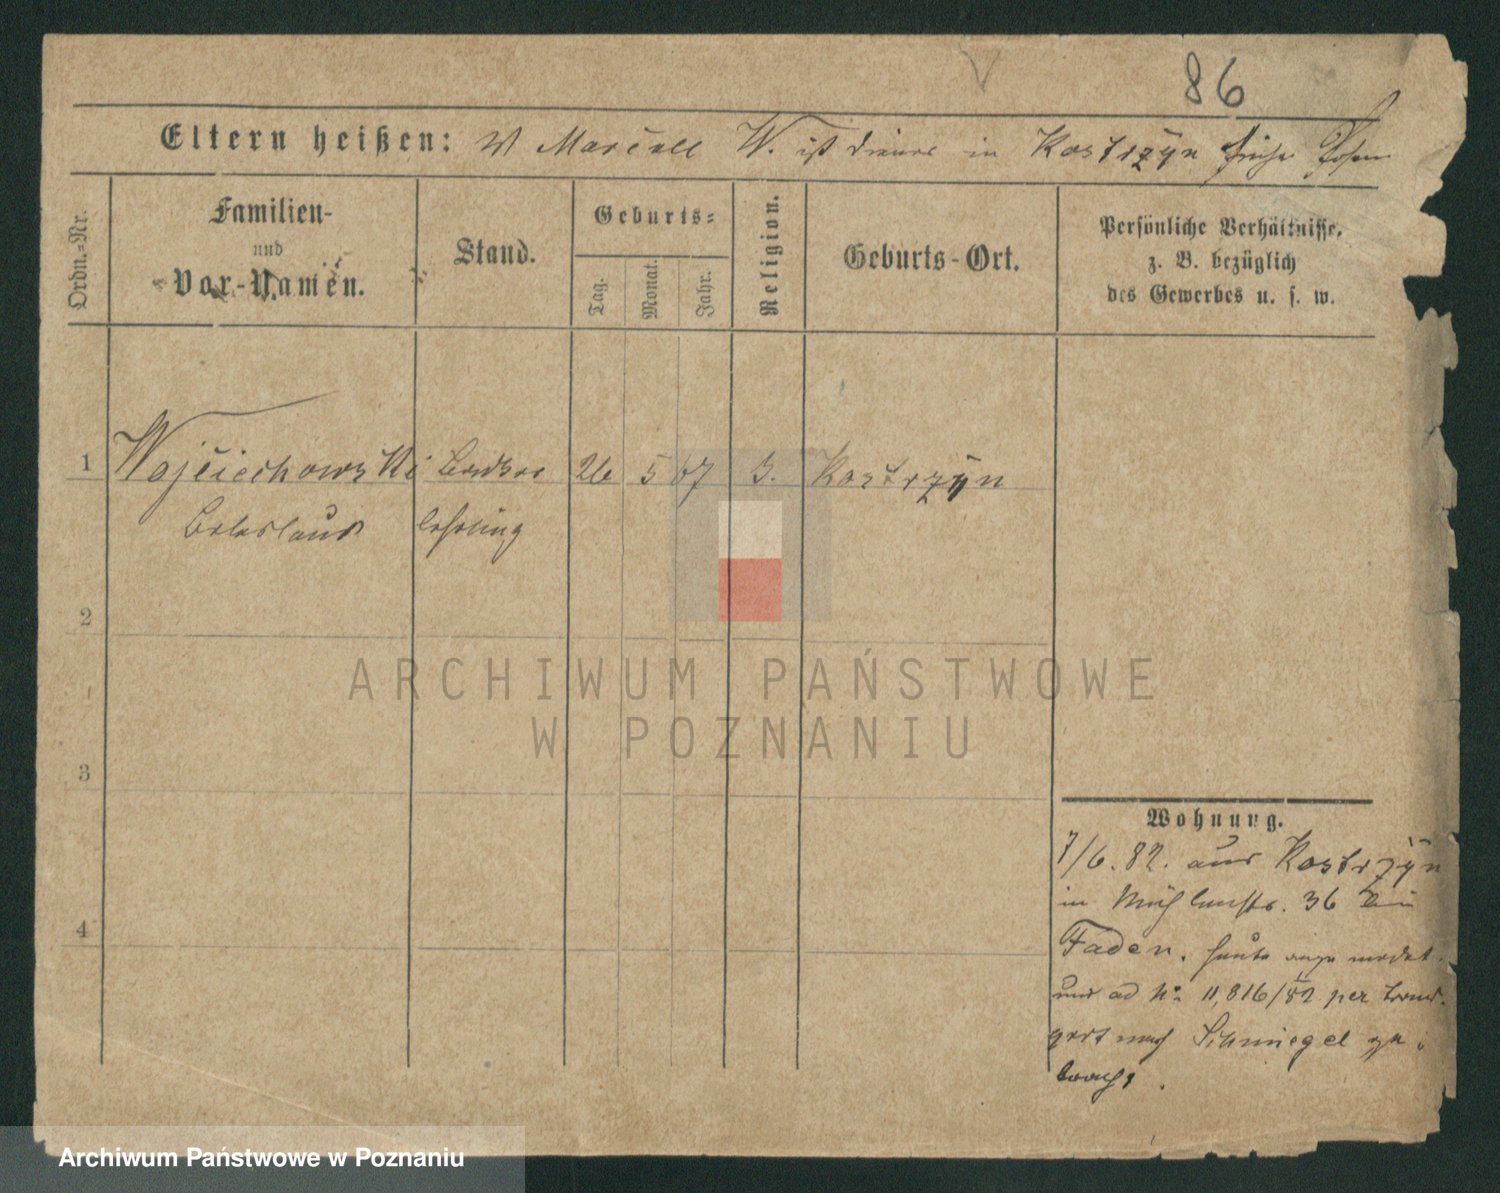 86
Eltern heißen: W Marcell W. ist Diener in Kostrzyn früher Posen
Ordn.-Nr.
Familien-
und
Vor-Namen.
Stand.
Geburts-
Tag.
Monat.
Jahr.
Religion.
Geburts-Ort.
Persönliche Verhältnisse,
z. B. bezüglich
des Gewerbes u. s. w.
1 Wojciechowski 26 5 67 Kostrzyn
Boleslaus lehrling
2
3
4
Wohnung.
7/6. 82. aus Kostrzyn
in Mühlenstr. 36 bei
Faden. heute
und ad No 11,816/82 per trans-
port nach Schmiegel ge-
bracht.
ARCHIWUM PAŃSTWOWE
W POZNANIU
Archiwum Państwowe w Poznaniu